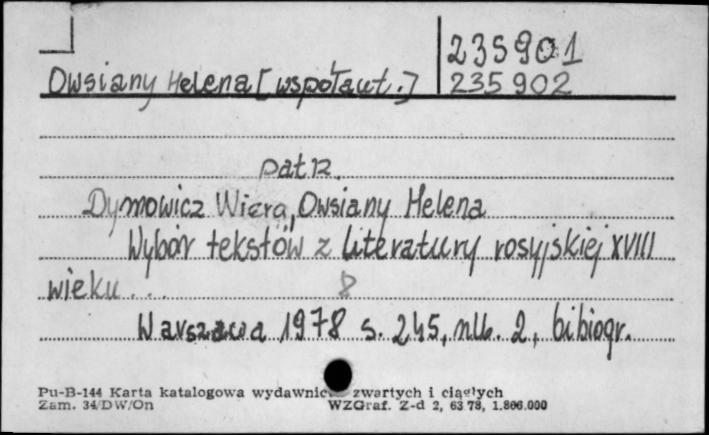 235901
Owsiany Helena [współaut.] 235902
patrz.
Dymowicz Wiera, Owsiany Helena
Wybór tekstów z literatury rosyjskiej XVIII
wieku... 8
Warszawa 1978 s. 245, nlb. 2, bibiogr.
Pu-B-144 Karta katalogowa wydawnic zwartych i ciągłych
Zam. 34/DW/On WZGraf. Z-d 2, 63 78, 1.806.000